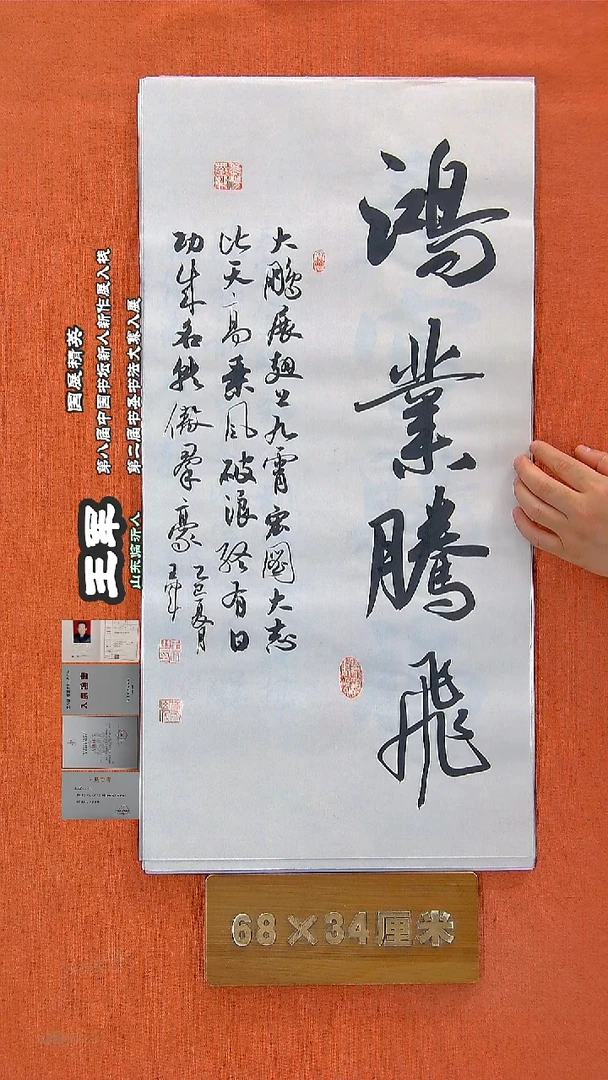 鴻業騰飛
大鵬展翅上九霄宏圖大志
比天高乘風破浪終有日
功成名就傲羣豪
乙巳夏月
王軍
国展精英
第八届中国书坛新人新作展入展
第二届书圣书法大赛入展
王军
山东临沂人
68×34厘米